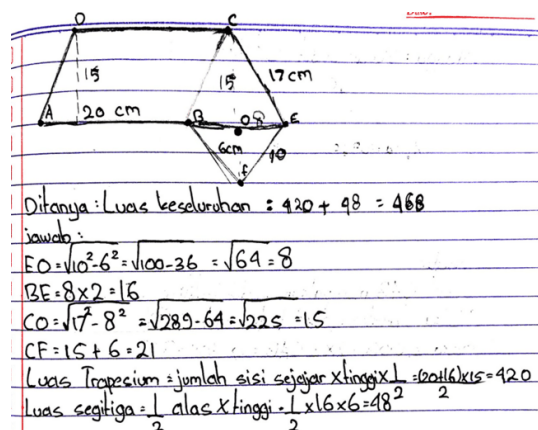 D C
15 15 17cm
A 20 cm B O 8 E
6cm 10
f
Ditanya : Luas keseluruhan : 420 + 48 = 468
jawab :
EO = √10²-6² = √100-36 = √64 = 8
BE = 8 x 2 = 16
CO = √17²-8² = √289-64 = √225 = 15
CF = 15 + 6 = 21
Luas Trapesium = jumlah sisi sejajar x tinggi x 1/2 = (20+16) x 15/2 = 420
Luas segitiga = 1/2 alas x tinggi = 1/2 x 16 x 6 = 48²